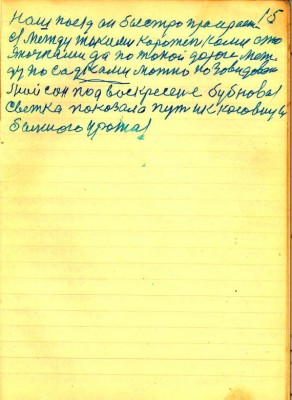 15
Наш поезд он быстро промчал
ся между такими короткими сто
яночками да по такой дороге меж
ду посадками можно позавидовать
сон под воскресенье бубновая
светка показала путик косовицы
бымного урожая